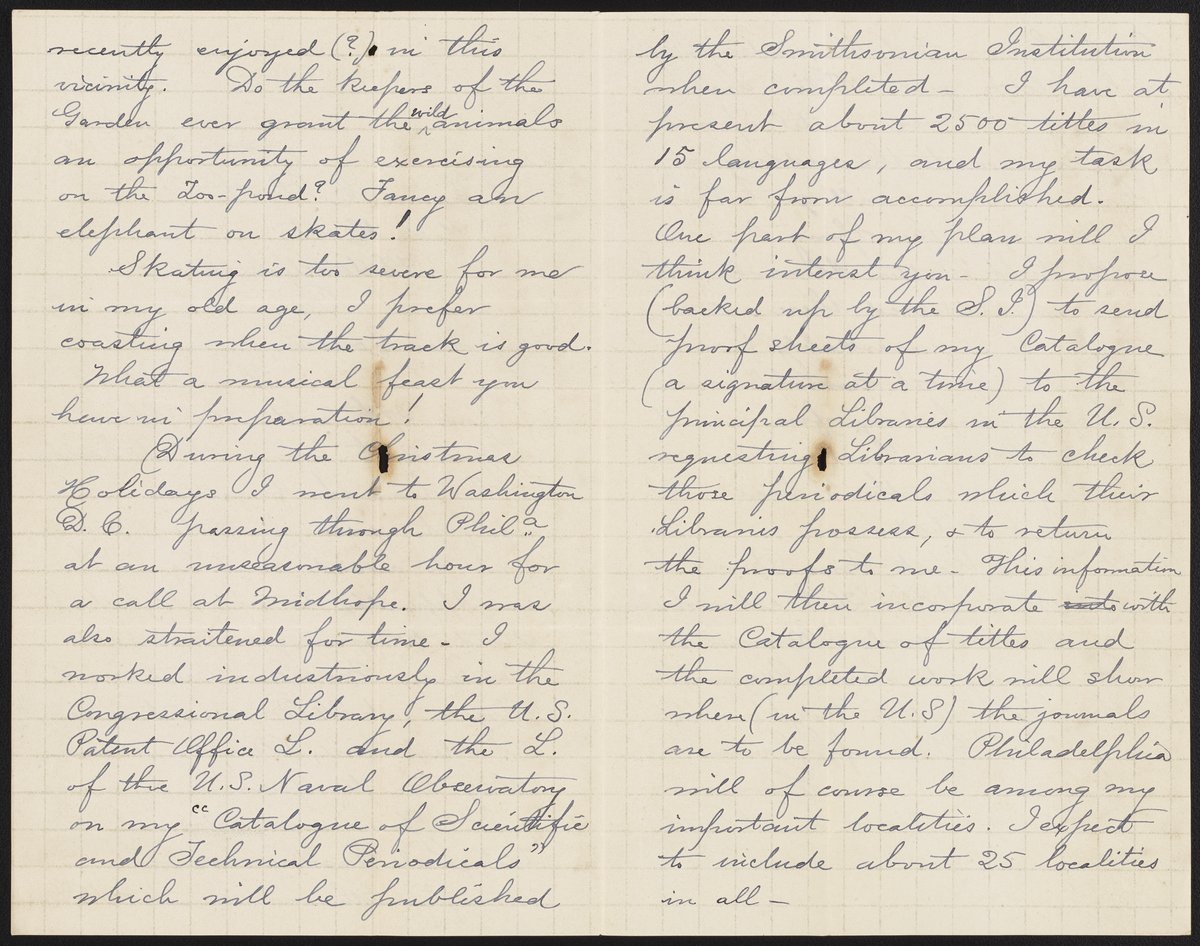 recently enjoyed (?) in this
vicinity. Do the keepers of the
Garden ever grant the wild animals
an opportunity of exercising
on the Zoo-pond? Fancy an
elephant on skates!
Skating is too severe for me
in my old age, I prefer
coasting when the track is good.
What a musical feast you
have in preparation!
(During the Christmas
Holidays I went to Washington
D. C. passing through Phila
at an unseasonable hour for
a call at Midhope. I was
also straitened for time - I
worked industriously in the
Congressional Library, the U.S.
Patent Office L. and the L.
of the U.S. Naval Observatory
on my "Catalogue of Scientific
and Technical Periodicals"
which will be published
by the Smithsonian Institution
when completed - I have at
present about 2500 titles in
15 languages, and my task
is far from accomplished.
One part of my plan will I
think interest you - I propose
(backed up by the S. I.) to send
proof sheets of my Catalogue
(a signature at a time) to the
principal Libraries in the U. S.
requesting Librarians to check
those periodicals which their
Libraries possess, & to return
the proofs to me - This information
I will then incorporate with
the Catalogue of titles and
the completed work will show
where (in the U.S) the journals
are to be found. Philadelphia
will of course be among my
important localities. I expect
to include about 25 localities
in all -